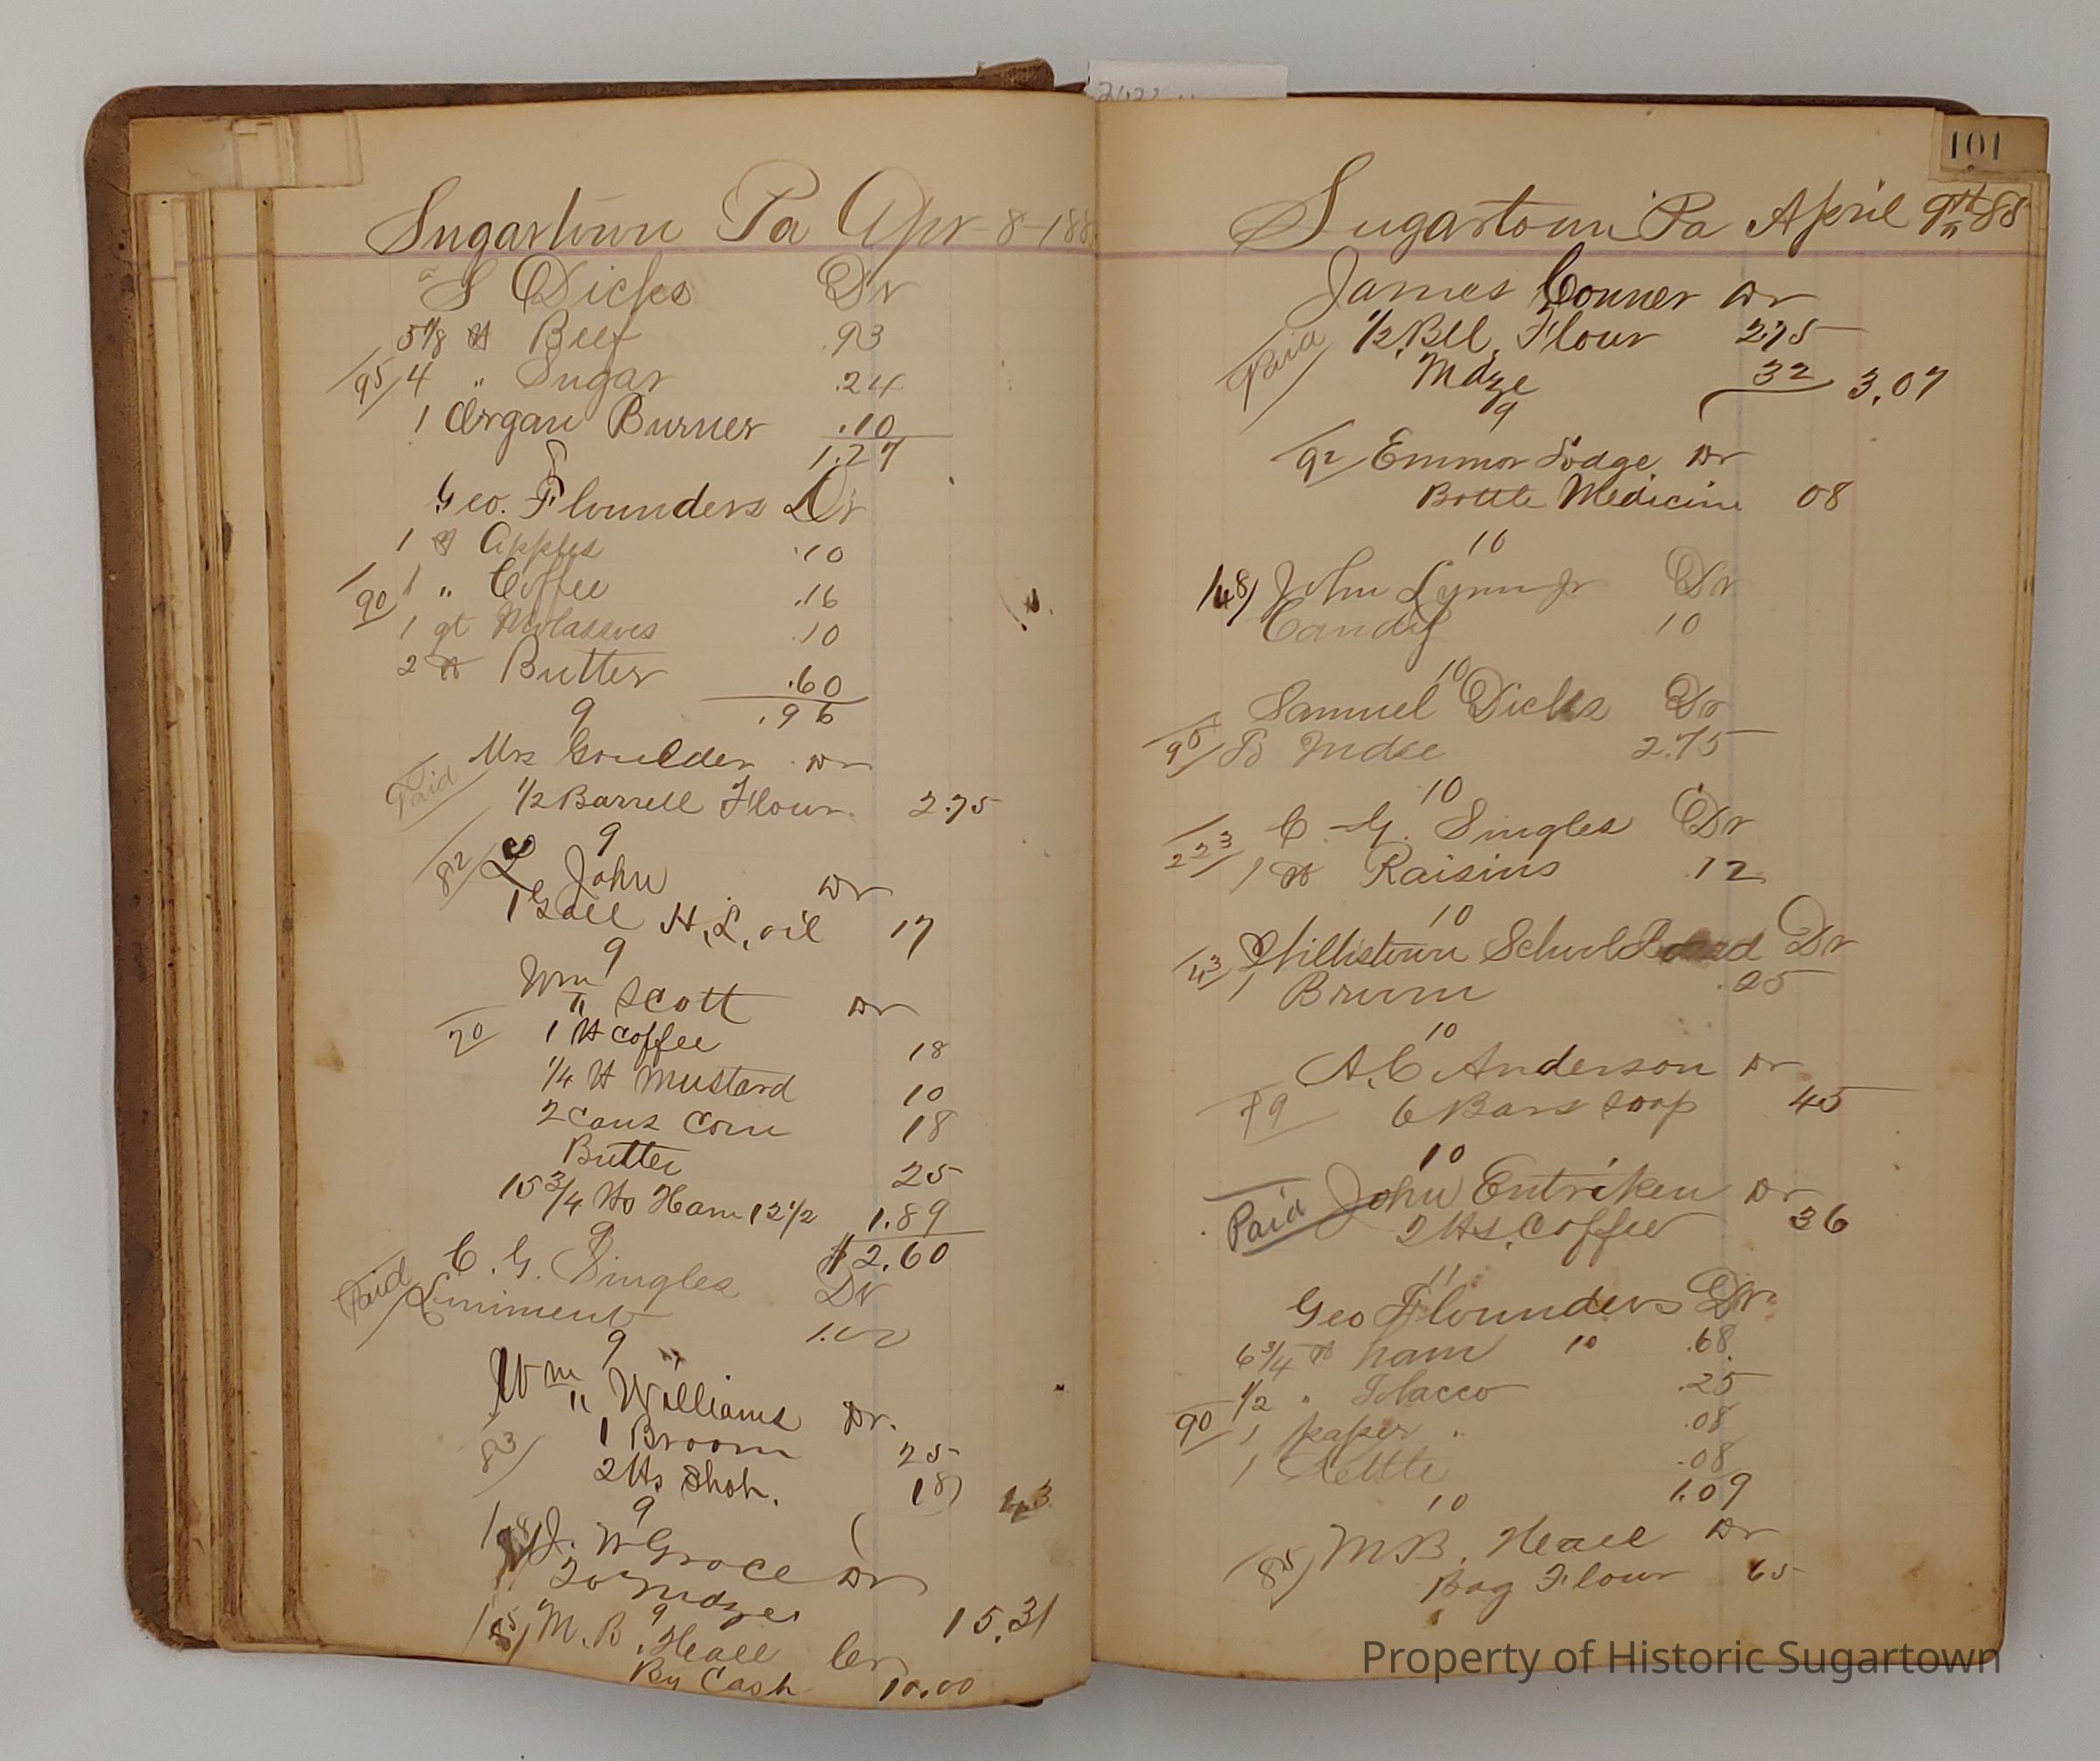 Sugartown Pa Apr 8-188
S Dicks Dr
5 7/8 lb Beef .93
95 4 " Sugar .24
1 Organ Burner .10
1.27
8
Geo. Flounders Dr
1 lb Apples .10
90 1 " Coffee .16
1 qt Molasses .10
2 lb Butter .60
.96
9
Mrs Goulder Dr
Paid 1/2 Barrell Flour 2.75
9
82 John Dr
1 Gall H.L. oil 17
9
Wm Scott Dr
20 1 lb Coffee 18
1/4 lb Mustard 10
2 Cans Corn 18
Butter 25
15 3/4 lbs Ham 12 1/2 1.89
$2.60
9
C. G. Singles Dr
Paid Liniment 1.00
9
Wm Williams Dr.
83 1 Broom 25
2 lbs Shot. 18) 43
9
J. W Grace Dr
To Mdze 15.31
9
85 M.B. Heall Cr
By Cash 10.00
101
Sugartown Pa April 9th 88
James Conner Dr
Paid 1/2 Bbl. Flour 2.75
Mdze 32 3.07
9
92 Emmor Lodge Dr
Bottle Medicine 08
10
148 John Lynn Jr Dr
Candy 10
10
Samuel Dicks Dr
95 B Mdse 2.75
10
223 C. G. Singles Dr
1 lb Raisins .12
10
43 Willistown School Board Dr
1 Brum .25
10
A.C Anderson Dr
89 6 Bars Soap 45
10
Paid John Entriken Dr
2 lbs. Coffee 36
11
Geo Flounders Dr.
6 3/4 lb ham 10 .68
1/2 " Tobacco .25
90 1 paper " .08
1 Kettle .08
1.09
10
85 M.B. Heall Dr
Bag Flour 65
Property of Historic Sugartown